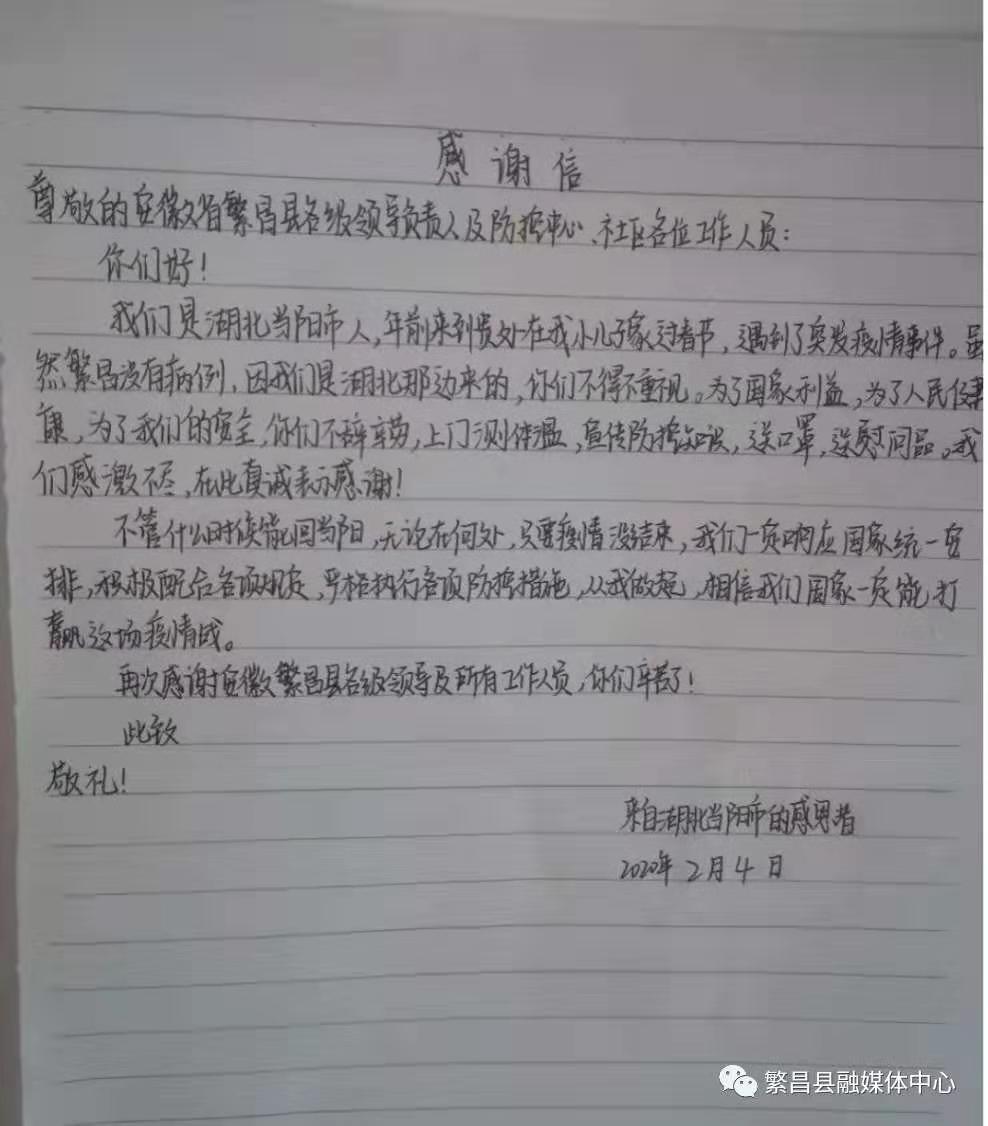 感谢信
尊敬的安徽省繁昌县各级领导负责人及防控中心、社区各位工作人员：
你们好！
我们是湖北当阳市人，年前来到贵处在我小儿子家过春节，遇到了突发疫情事件。虽
然繁昌没有病例，因我们是湖北那边来的，你们不得不重视。为了国家利益，为了人民健
康，为了我们的安全，你们不辞辛劳，上门测体温，宣传防控知识，送口罩，送慰问品。我
们感激不尽，在此真诚表示感谢！
不管什么时候能回当阳，无论在何处，只要疫情没结束，我们一定响应国家统一安
排，积极配合各项规定，严格执行各项防控措施，从我做起，相信我们国家一定能打
赢这场疫情战。
再次感谢安徽繁昌县各级领导及所有工作人员，你们辛苦了！
此致
敬礼！
来自湖北当阳市的感恩者
2020年2月4日
繁昌县融媒体中心